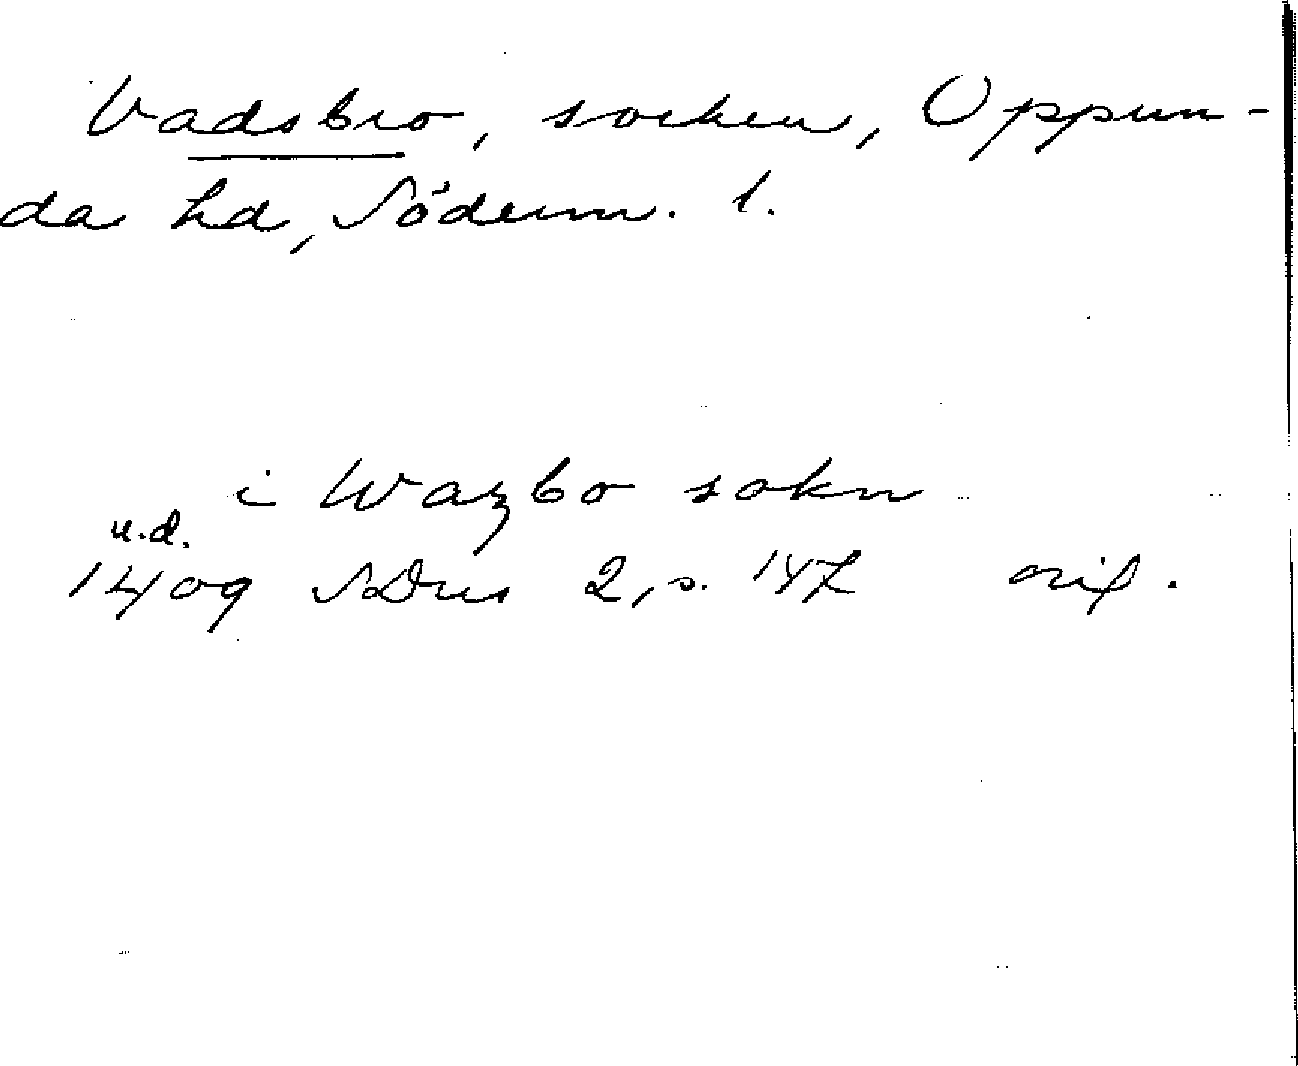 Vadsbro, socken, Oppun-
da hd, Söderm. l.
i Wazbo sokn
u.d.
1409 SDns 2, s. 147 orig.